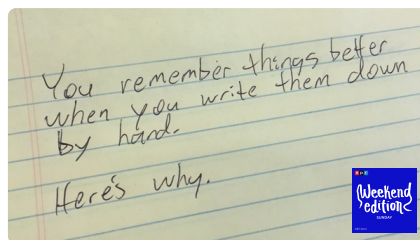 You remember things better
when you write them down
by hand.
Here's why.
npr
Weekend
edition
SUNDAY